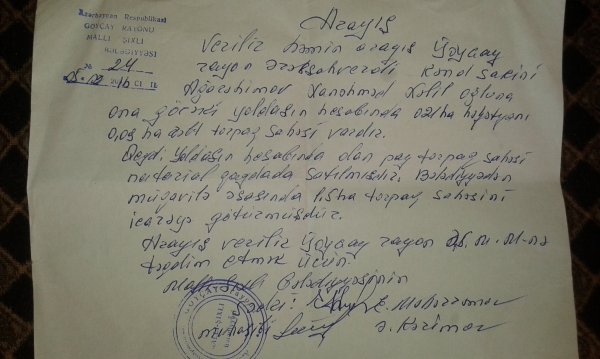 Azərbaycan Respublikası
GÖYÇAY RAYONU
MALLI ŞIXLI
BƏLƏDİYYƏSİ
№ 24
2016 CI İL
Arayış
Verilir həmin arayış Göyçay
rayon Ərəbşahverdi kənd sakini
Xanəhməd Xəlil oğluna
ona görəki yoldaşın hesabında
0,09 ha torpaq sahəsi vardır.
Qeyd: Yoldaşın hesabında olan pay torpaq sahəsi
notarial qaydada satılmışdır. Bələdiyyədən
müqavilə əsasında torpaq sahəsini
icarəyə götürmüşdür.
Arayış verilir Göyçay rayon
təqdim etmək üçün.
Mallı Şıxlı Bələdiyyəsinin
sədri: E. Məhərrəmov
mühasibi Ə. Kərimov